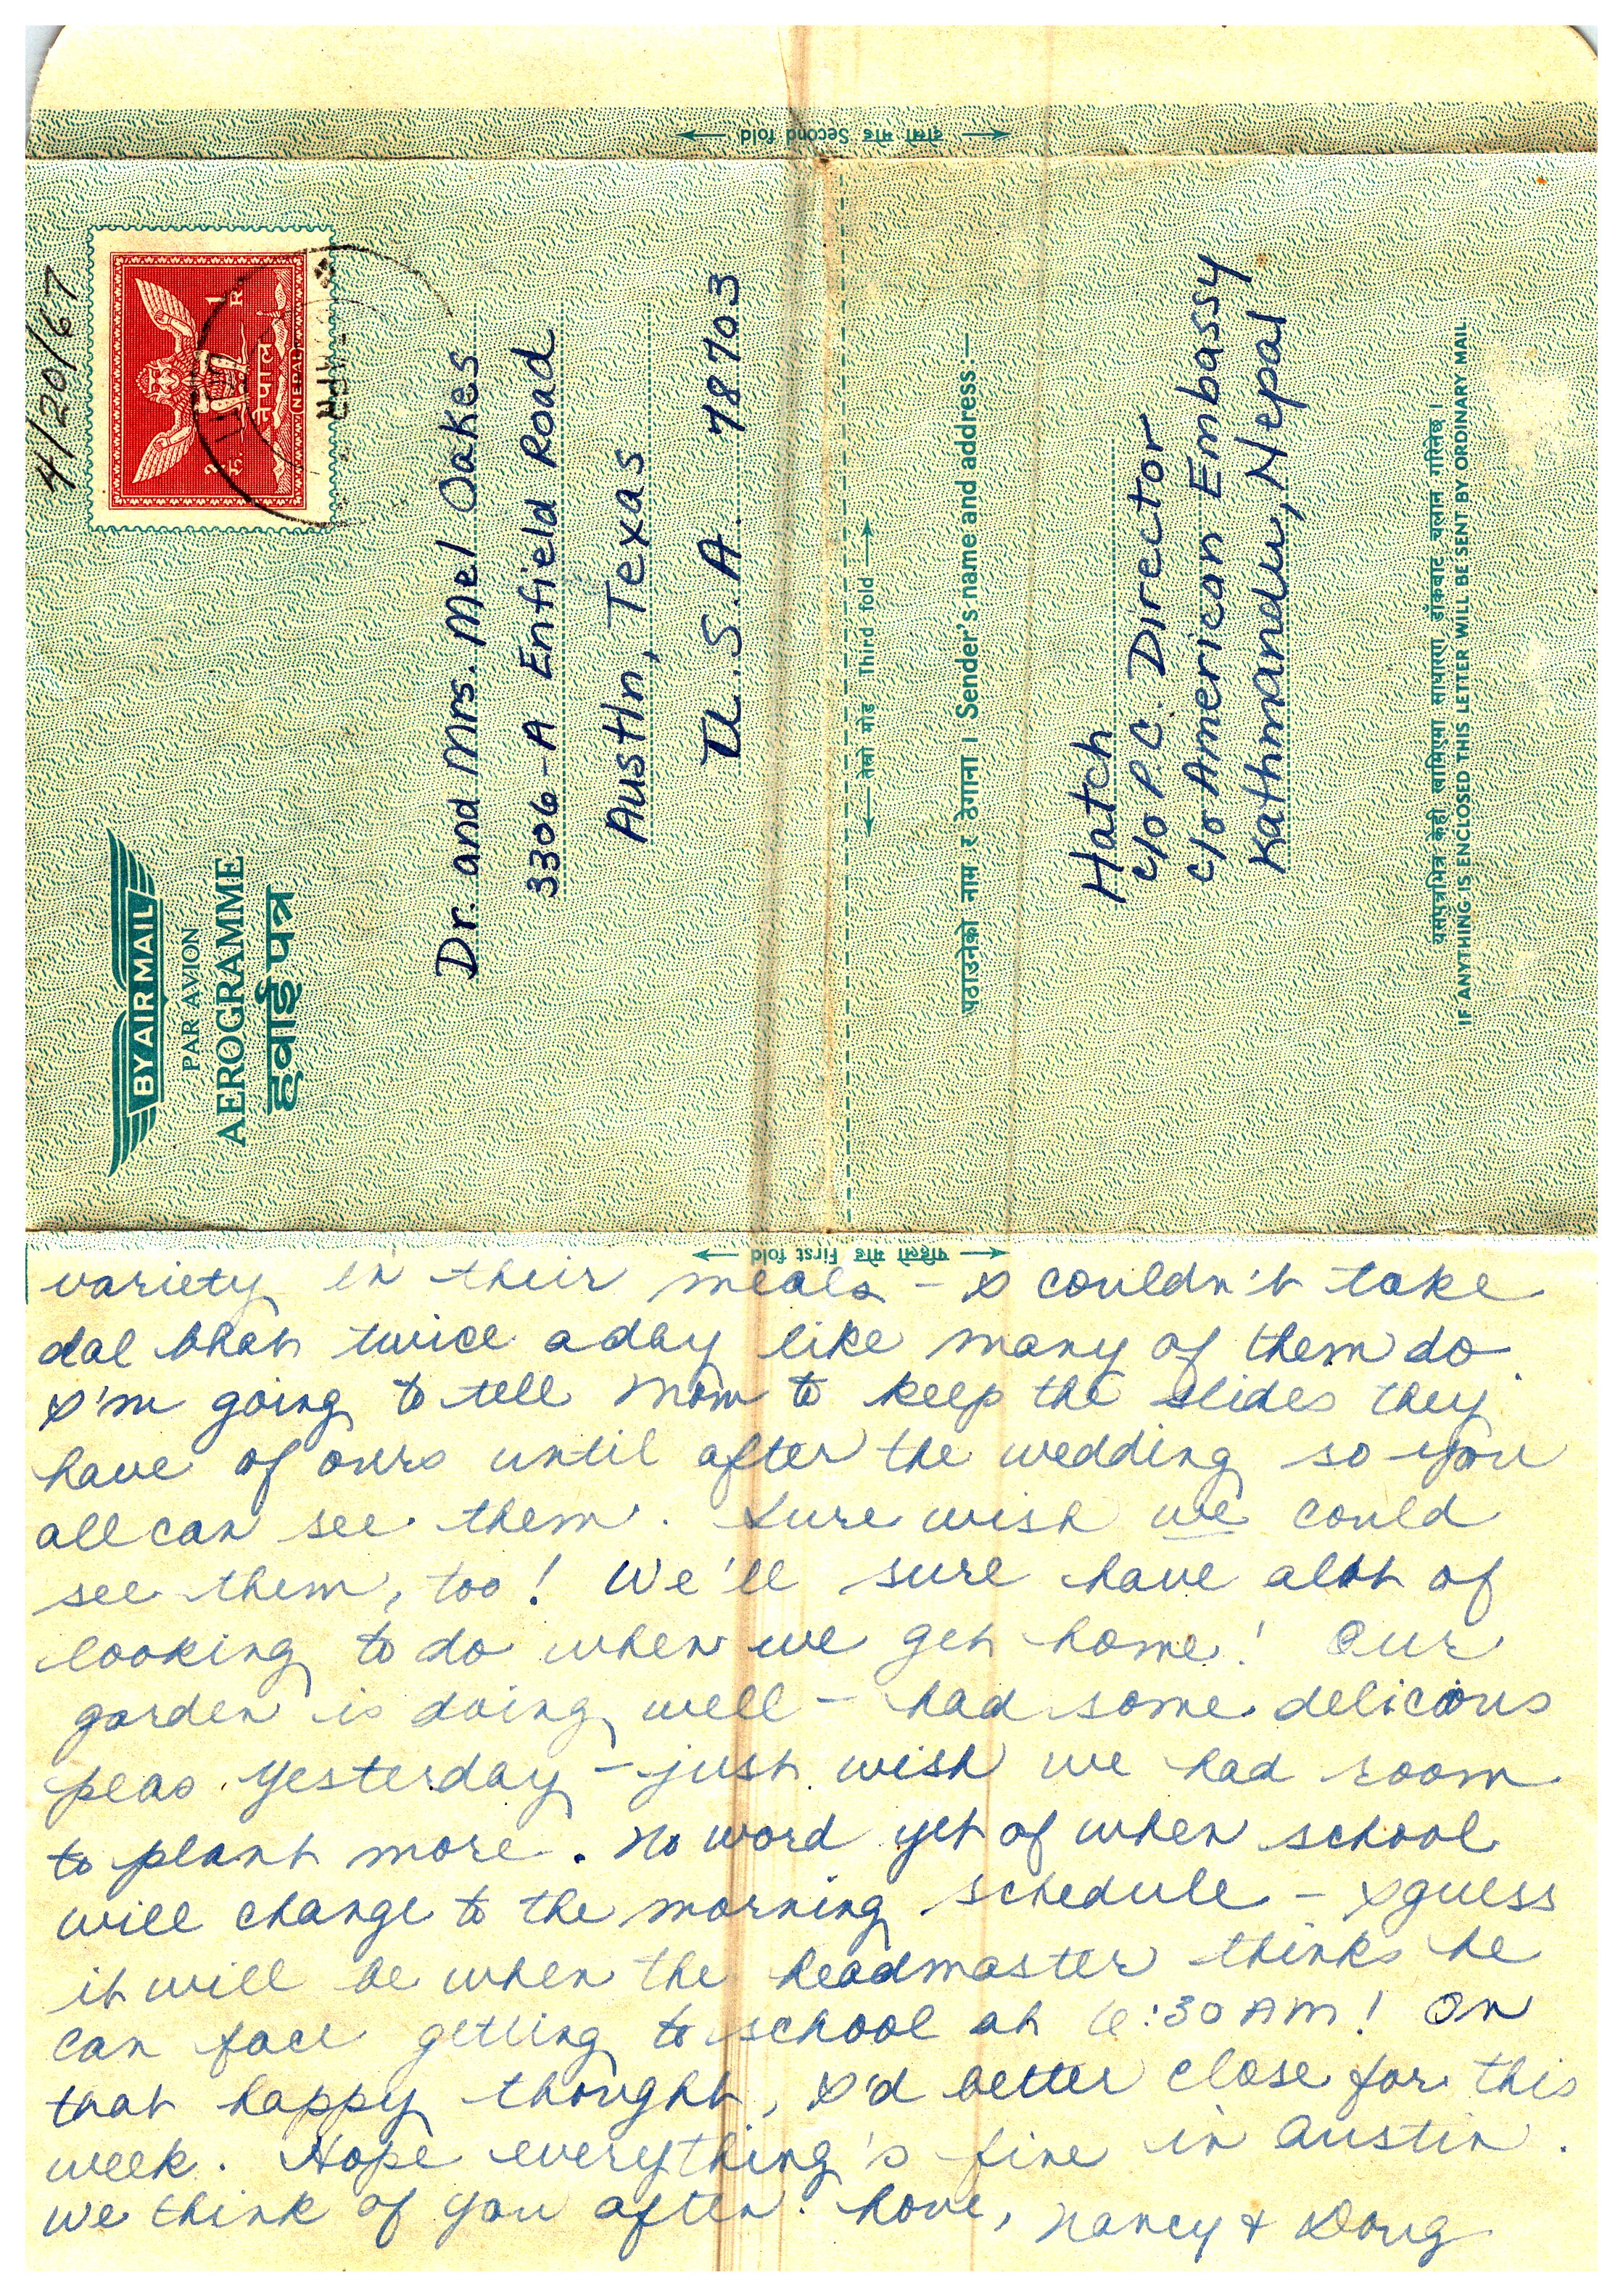 दोस्रो मोड Second fold
4/20/67
१ रु. 1 R
नेपाल
NEPAL
BY AIR MAIL
PAR AVION
AEROGRAMME
हवाई पत्र
Dr. and Mrs. Mel Oakes
3306-A Enfield Road
Austin, Texas
U.S.A. 78703
तेस्रो मोड Third fold
पठाउनेको नाम र ठेगाना । Sender's name and address:—
Hatch
c/o P.C. Director
c/o American Embassy
Kathmandu, Nepal
यसपत्रभित्र केही खामिएमा साधारण डाँकबाट चलान गरिनेछ ।
IF ANYTHING IS ENCLOSED THIS LETTER WILL BE SENT BY ORDINARY MAIL
पहिलो मोड First fold
variety in their meals – I couldn't take
dal bhat twice a day like many of them do.
I'm going to tell Mom to keep the slides they
have of ours until after the wedding so you
all can see them. Sure wish we could
see them, too! We'll sure have alot of
looking to do when we get home! Our
garden is doing well – had some delicious
peas yesterday – just wish we had room
to plant more. No word yet of when school
will change to the morning schedule – I guess
it will be when the headmaster thinks he
can face getting to school at 6:30 AM! On
that happy thought, I'd better close for this
week. Hope everything's fine in Austin.
We think of you often. Love, Nancy + Doug